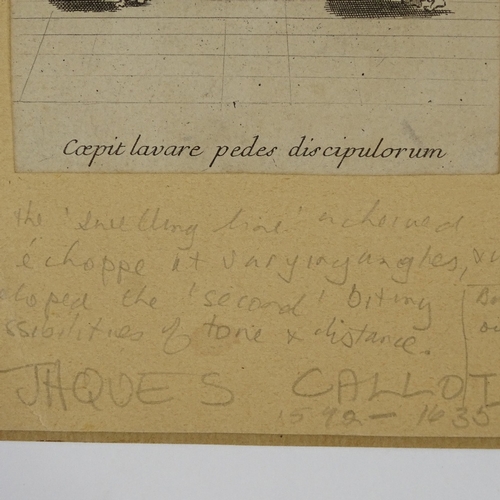 Cœpit lavare pedes discipulorum
the 'swelling line' achieved
échoppe at varying angles,
eloped the 'second' biting
ssibilities of tone & distance.
JAQUES CALLOT
1592 - 1635